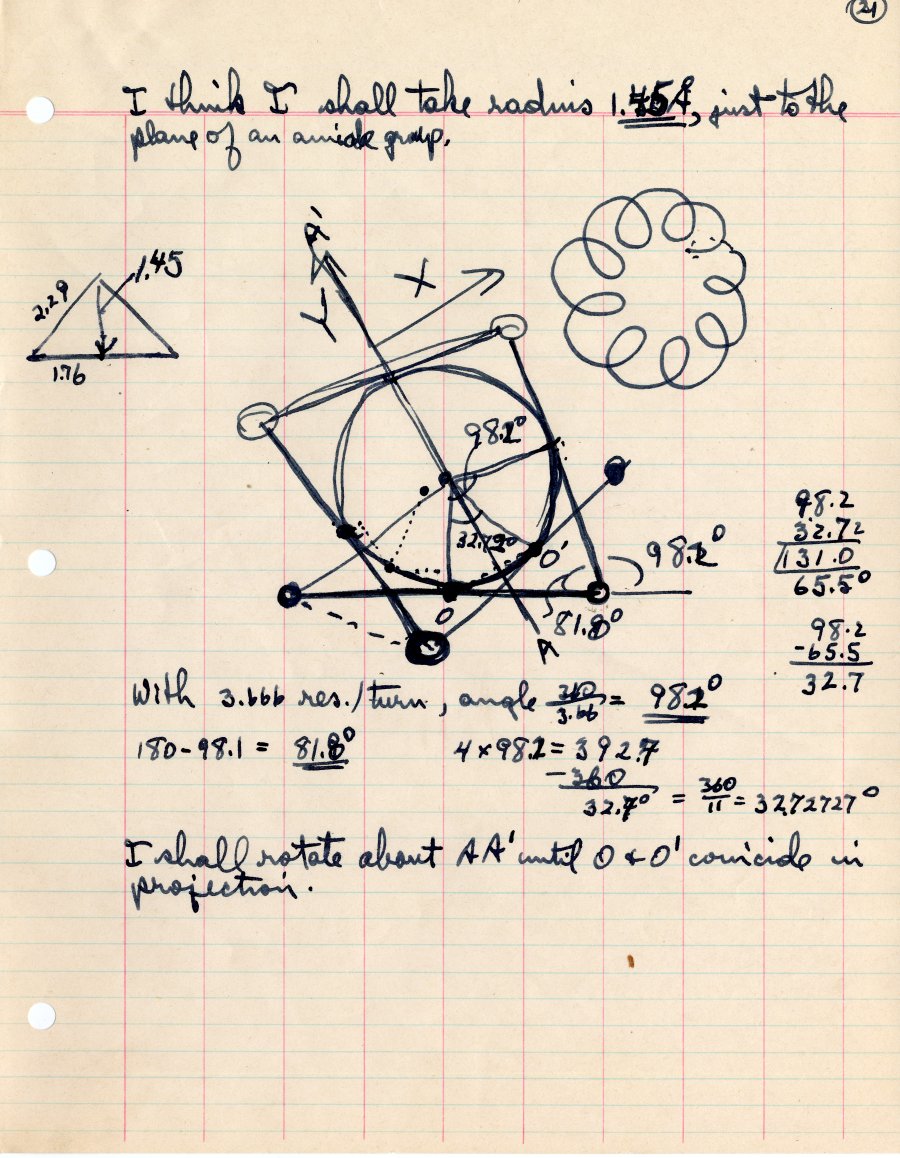 21
I think I shall take radius 1.45Å, just to the
plane of an amide group.
A'
Y
X
2.29
1.45
1.76
98.2°
32.72°
O'
98.2°
O
81.8°
A
98.2
32.72
131.0
65.5°
98.2
-65.5
32.7
With 3.666 res./turn, angle 360/3.66 = 98.2°
180-98.1 = 81.8°
4 × 98.2 = 392.7
-360
32.7° = 360/11 = 32.72727°
I shall rotate about AA' until O & O' coincide in
projection.